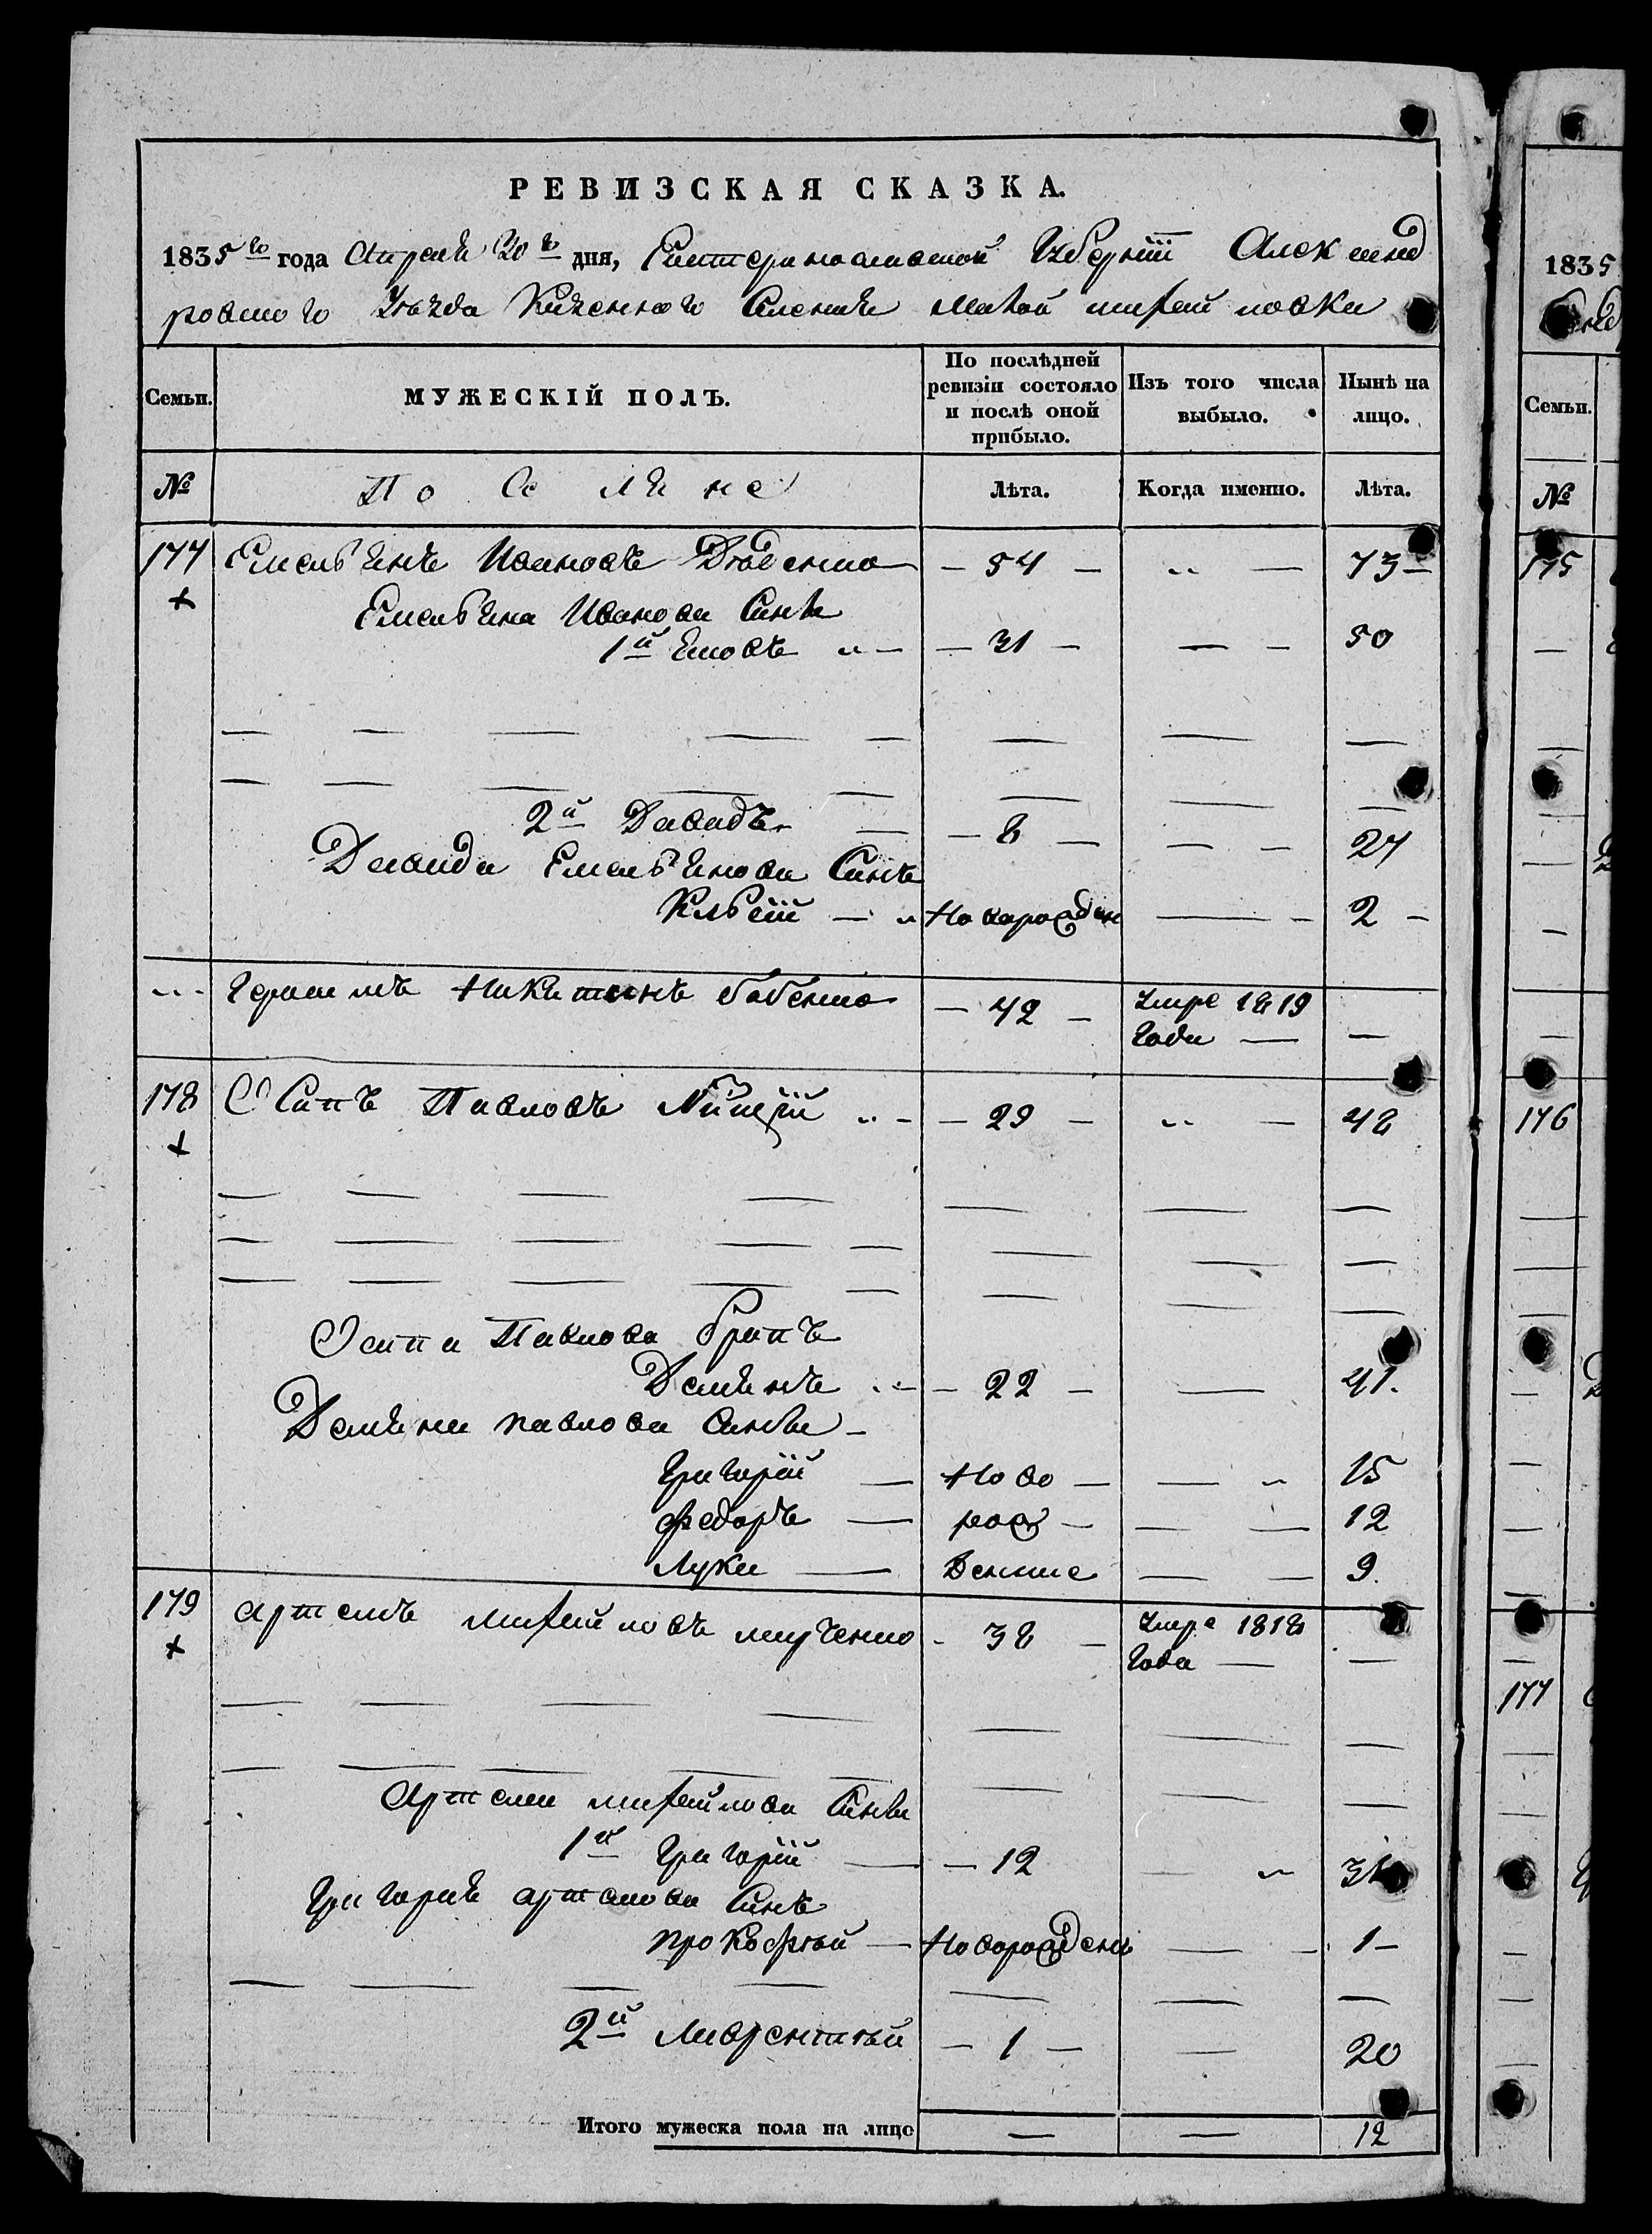 РЕВИЗСКАЯ СКАЗКА.
1835го года Апреля 20го дня, Екатеринославской Губернии Александ
ровского Уезда Казенного Селения Михайловки
Семьи. МУЖЕСКІЙ ПОЛЪ. По послѣдней ревизіи состояло и послѣ оной прибыло. Изъ того числа выбыло. Нынѣ на лицо.
№ Поселяне Лѣта. Когда именно. Лѣта.
177 Емельянъ Ивановъ Дѣденко — 54 — „ — 73 —
Емельяна Иванова Сыны
1й Яковъ „ — — 31 — — — 50
2й Давидъ — — 8 — — — 27
Давида Емельянова Сынъ
— „ Новорожден — — 2 —
„ Герасимъ Никитинъ бабенко — 42 — Умре 1819
Года — —
178 Осипъ Павловъ Нищій „ — — 29 — „ — 48
Осипа Павлова братъ
Демянъ „ — — 22 — — 41.
Демяна павлова Сыны —
Григорій — Ново — — „ 15
Федоръ — рож — — — 12
Лука — денные — — 9.
179 артемъ михайловъ — 38 — Умре 1818
Года — —
Артема михайлова Сыны
1й Григорій — — 12 „
Григория артемова Сынъ
прокофѣй — Новорожденъ — — 1 —
2й Лаврентѣй — 1 — — 20
Итого мужеска пола на лицо — — 12
1835
Семьи.
№
175
176
177